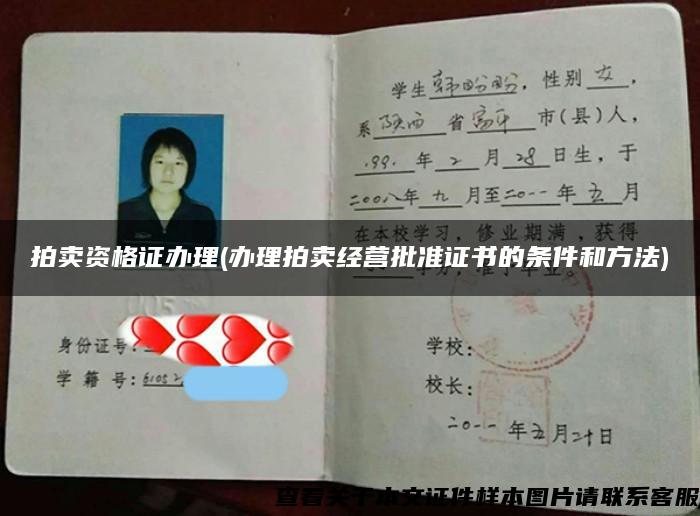 学生韩盼盼,性别女,
系陕西省富平市(县)人,
1991年2月28日生,于
二00八年九月至二0一一年五月
在本校学习,修业期满,获得
拍卖资格证办理(办理拍卖经营批准证书的条件和方法)
学分,准予毕业。
身份证号:
学籍号:61052
学校:
校长:
二0一一年五月二十日
查看关于本文证件样本图片请联系客服